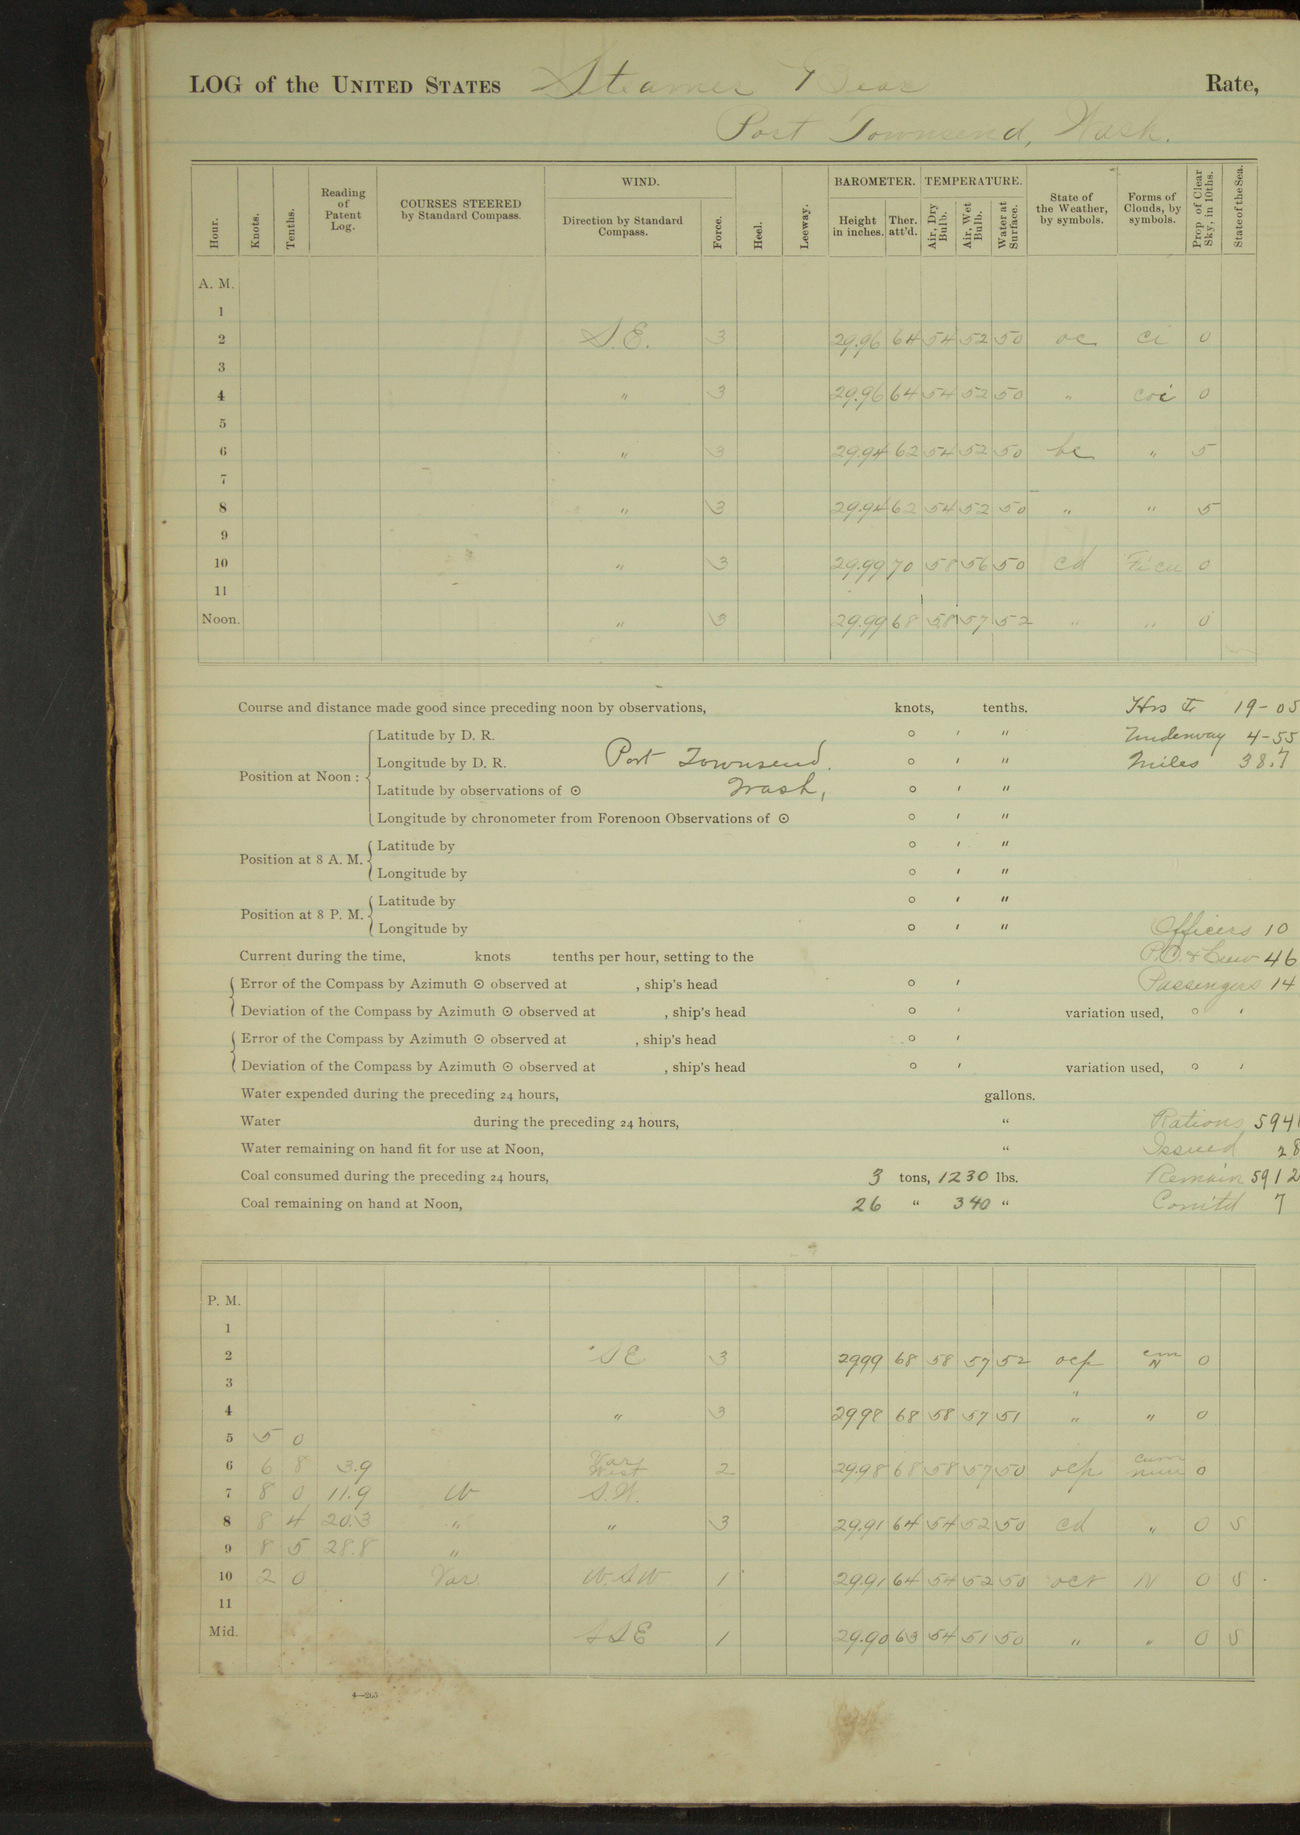 LOG of the UNITED STATES Steamer Bear Rate,
Port Townsend, Wash.
Hour. Knots. Tenths. Reading of Patent Log. COURSES STEERED by Standard Compass. WIND. Direction by Standard Compass. Force. Heel. Leeway. BAROMETER. Height in inches. Ther. att'd. TEMPERATURE. Air, Dry Bulb. Air, Wet Bulb. Water at Surface. State of the Weather, by symbols. Forms of Clouds, by symbols. Prop. of Clear Sky, in 10ths. State of the Sea.
A. M.
1
2 S.E. 3 29.96 64 54 52 50 oc ci 0
3
4 " 3 29.96 64 54 52 50 " coi 0
5
6 " 3 29.94 62 54 52 50 bc " 5
7
8 " 3 29.94 62 54 52 50 " " 5
9
10 " 3 29.99 70 58 56 50 cd 0
11
Noon. " 3 29.99 68 58 57 52 " " 0
Course and distance made good since preceding noon by observations, knots, tenths. Hrs 19-05
Latitude by D. R. ° ′ ″ Underway 4-55
Position at Noon : Longitude by D. R. Port Townsend. ° ′ ″ Miles 38.7
Latitude by observations of ☉ Wash, ° ′ ″
Longitude by chronometer from Forenoon Observations of ☉ ° ′ ″
Position at 8 A. M. Latitude by ° ′ ″
Longitude by ° ′ ″
Position at 8 P. M. Latitude by ° ′ ″
Longitude by ° ′ ″ Officers 10
Current during the time, knots tenths per hour, setting to the P.O. & Crew 46
Error of the Compass by Azimuth ☉ observed at , ship's head ° ′ Passengers 14
Deviation of the Compass by Azimuth ☉ observed at , ship's head ° ′ variation used, ° ′
Error of the Compass by Azimuth ☉ observed at , ship's head ° ′
Deviation of the Compass by Azimuth ☉ observed at , ship's head ° ′ variation used, ° ′
Water expended during the preceding 24 hours, gallons.
Water during the preceding 24 hours, " Rations 594
Water remaining on hand fit for use at Noon, " Issued 28
Coal consumed during the preceding 24 hours, 3 tons, 1230 lbs. Remain 5912
Coal remaining on hand at Noon, 26 " 340 " Com'td 7
P. M.
1
2 SE 3 2999 68 58 57 52 ocp cum N 0
3 "
4 " 3 2998 68 58 57 51 " " 0
5 5 0
6 6 8 3.9 Var West 2 29.98 68 58 57 50 ocp cum nim 0
7 8 0 11.9 W S.W.
8 8 4 20.3 " " 3 29.91 64 54 52 50 cd " 0 S
9 8 5 28.8 "
10 2 0 Var. W.SW 1 29.91 64 54 52 50 ocr N 0 S
11
Mid. SSE 1 29.90 63 54 51 50 " " 0 S
4—265